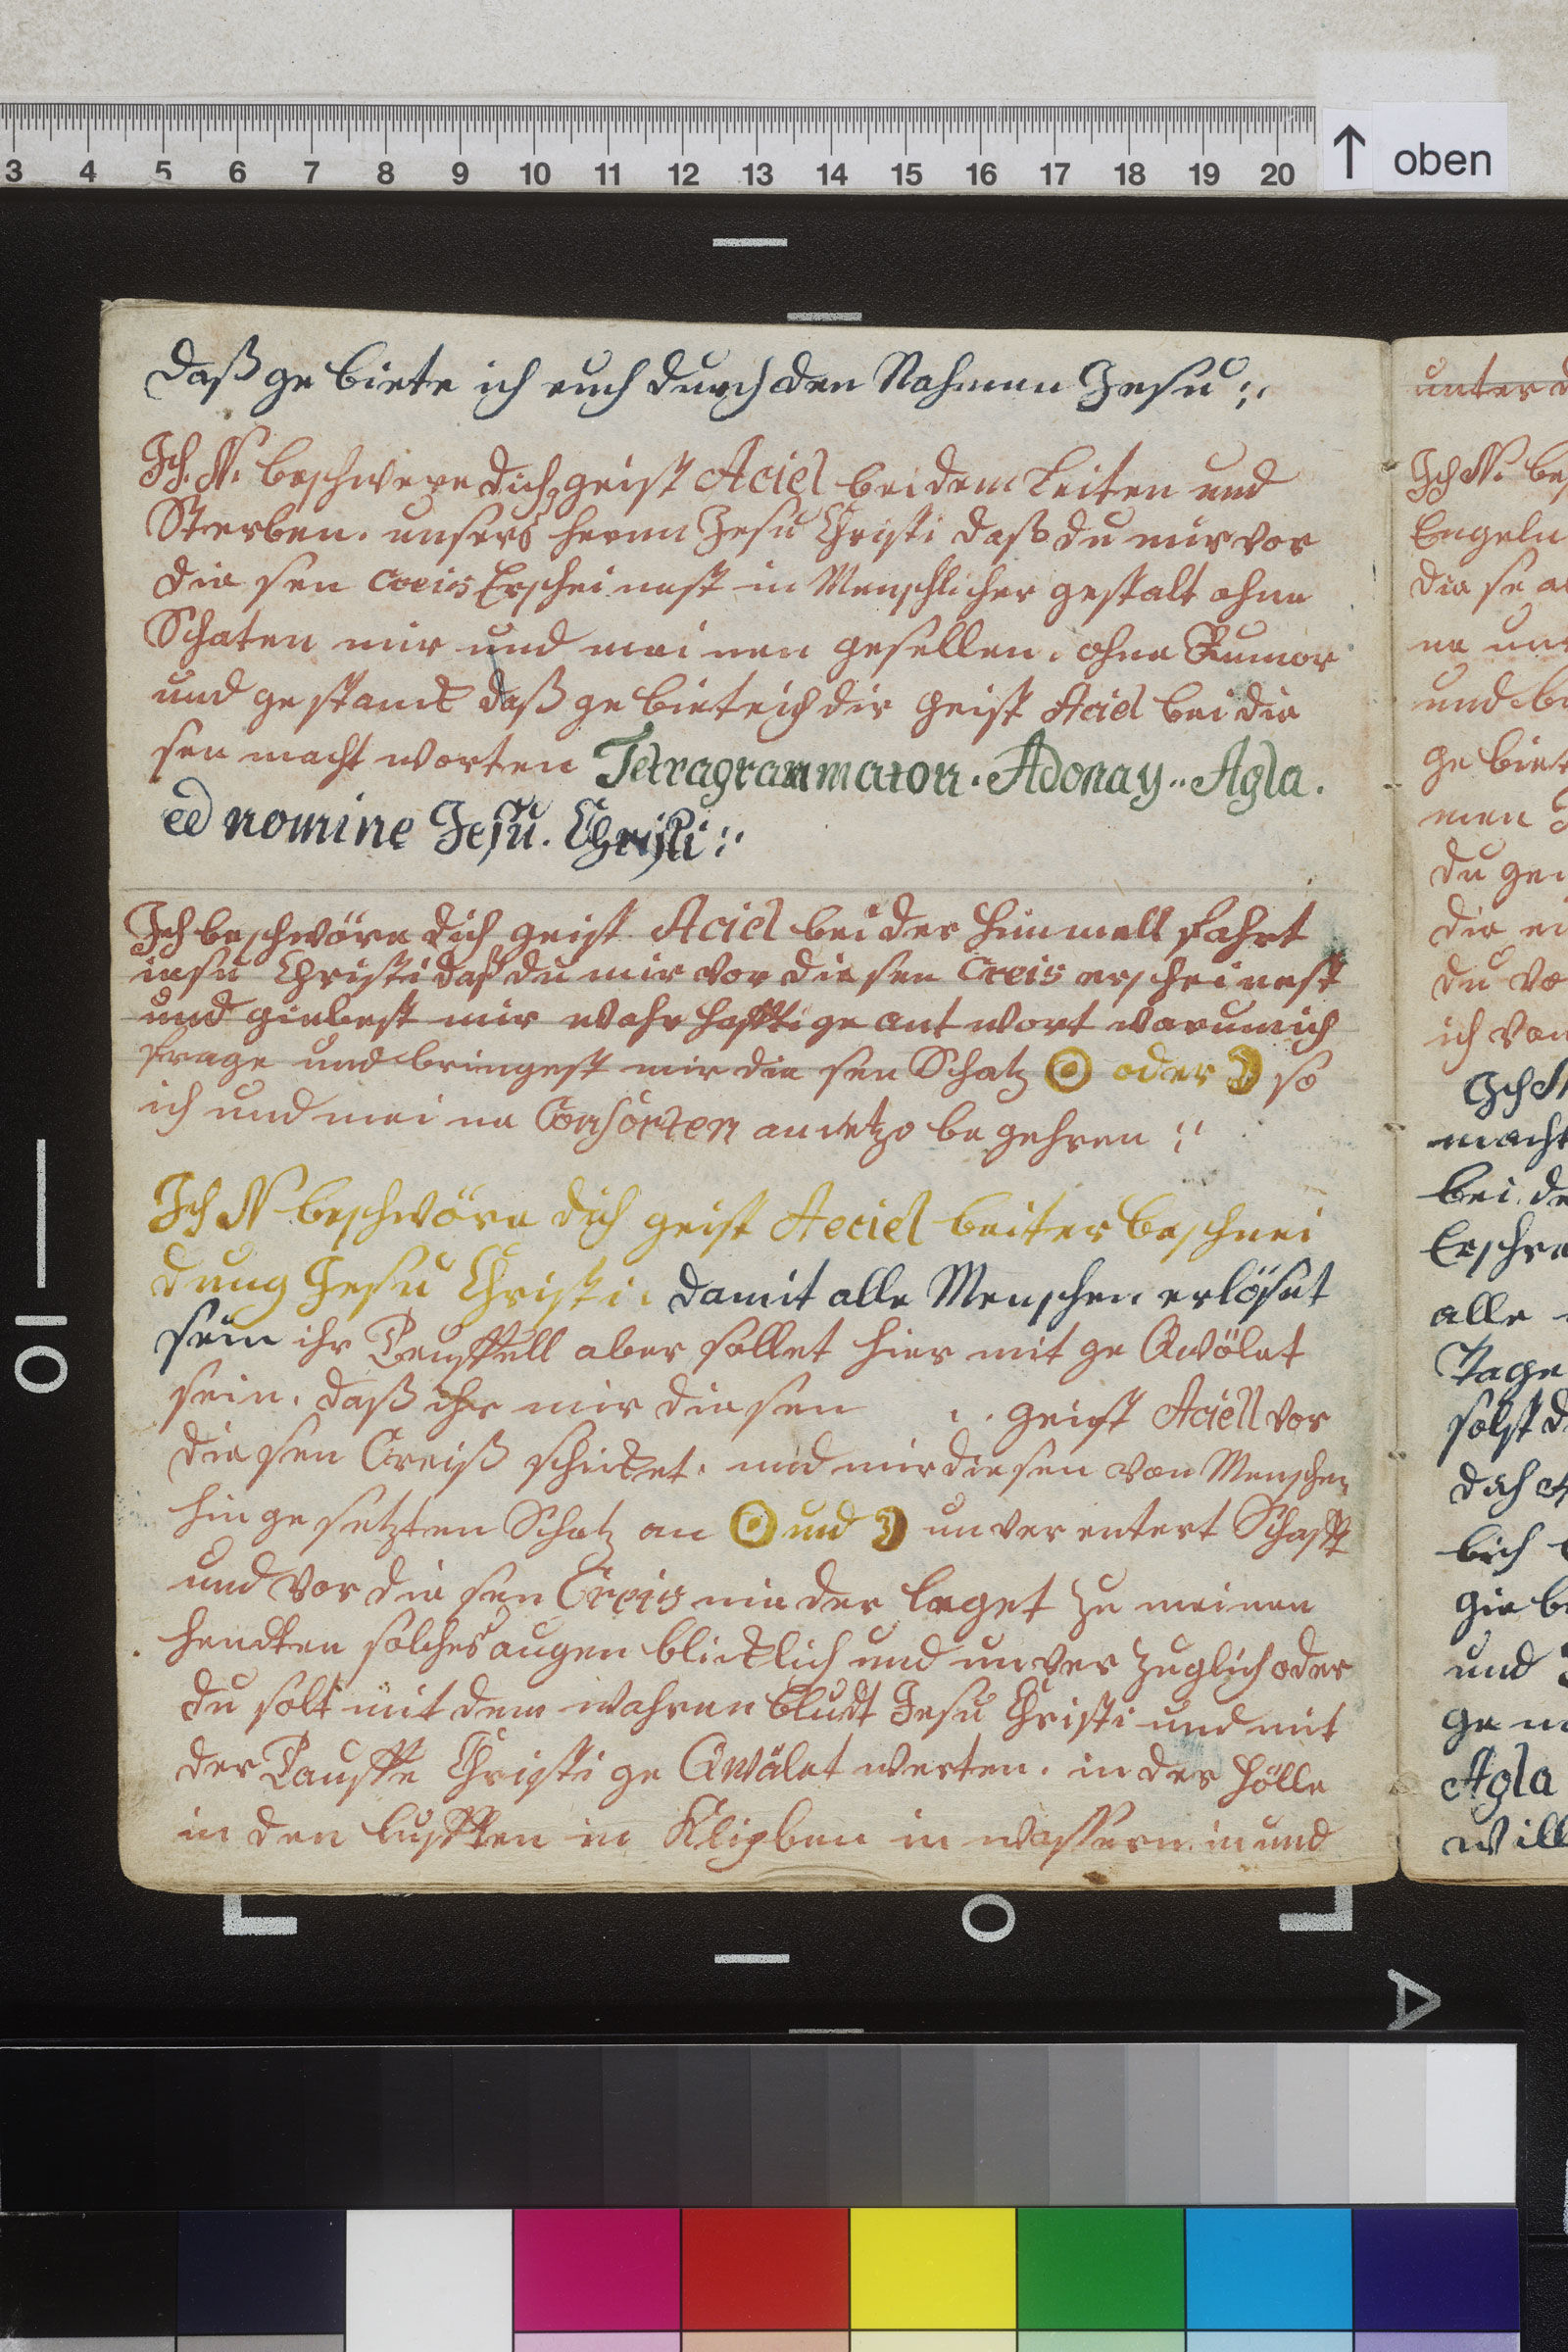 3 4 5 6 7 8 9 10 11 12 13 14 15 16 17 18 19 20
oben
Daß ge biete ich euch durch den Nahmen Jesu :,
Ich. N. beschwere dich geist Aciel bei dem Leiten und
Sterben. unsers herrn Jesu Christi daß du mir vor
die sen Creis Erschei nest in Menschlicher gestalt ohne
Schaten mir und mei nen gesellen. ohne Rumor
und ge stanck daß ge biete ich dir Geist Aciel bei die
sen macht worten Tetragrammaton. Adonay.. Agla.
ed nomine Jesu. Christi :,
Ich beschwöre dich geist Aciel bei der himmell fahrt
iesu Christi daß du mir vor die sen Creis erschei nest
und giebest mir wahr hafftige ant wort warum ich
frage und bringest mir die sen Schatz ☉ oder ☽ so
ich und mei ne Consorten an ietzo be gehren :,
Ich N beschwöre dich geist Aeciel bei ter beschnei
dung Jesu Christi. damit alle Menschen erlöset
sein ihr Teuffell aber sollet hier mit ge Qwölet
sein. daß ihr mir die sen . . geist Aciell vor
die sen Creiß schicket. und mir die sen von Menschen
hin ge setzten Schatz an ☉ und ☽ un ver entert Schafft
und vor die sen Creis nie der leget zu meinen
hendten solches augen blicklich und un ver zuglich oder
du solt mit dem wahren bludt Jesu Christi und mit
der Tauffe Christi ge Qwälet werten. in der Hölle
in den lufften in Klipben in wassern. in und
unter d
Ich N. be
Engeln
die se a
ne un
und b
ge biet
men J
du gei
die ei
du vo
ich von
Ich N
macht
bei de
Erschre
alle
Tage
solst d
daß
lich
gie b
und
ge
Agla
will